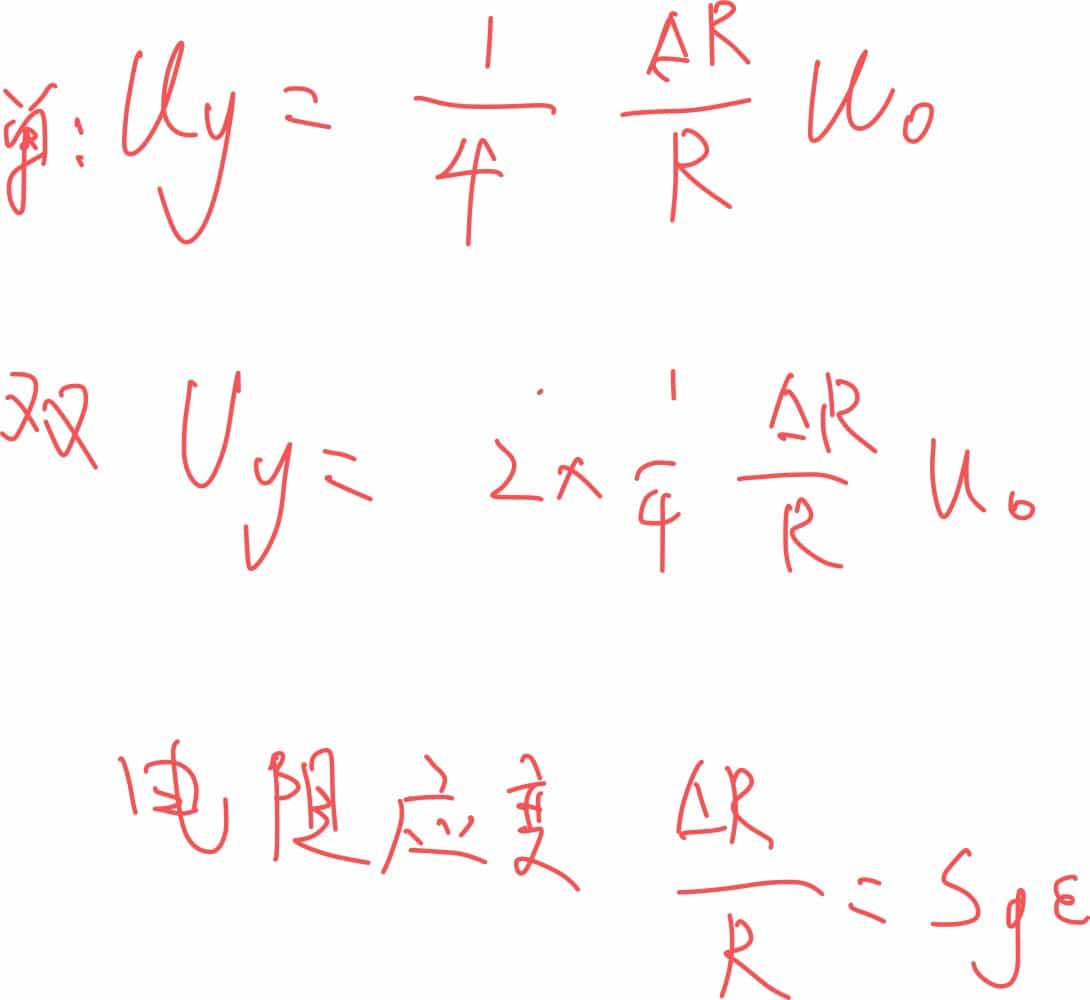 单: Uy = 1/4 ΔR/R U₀
双 Uy = 2 × 1/4 ΔR/R U₀
电阻应变 ΔR/R = Sgε